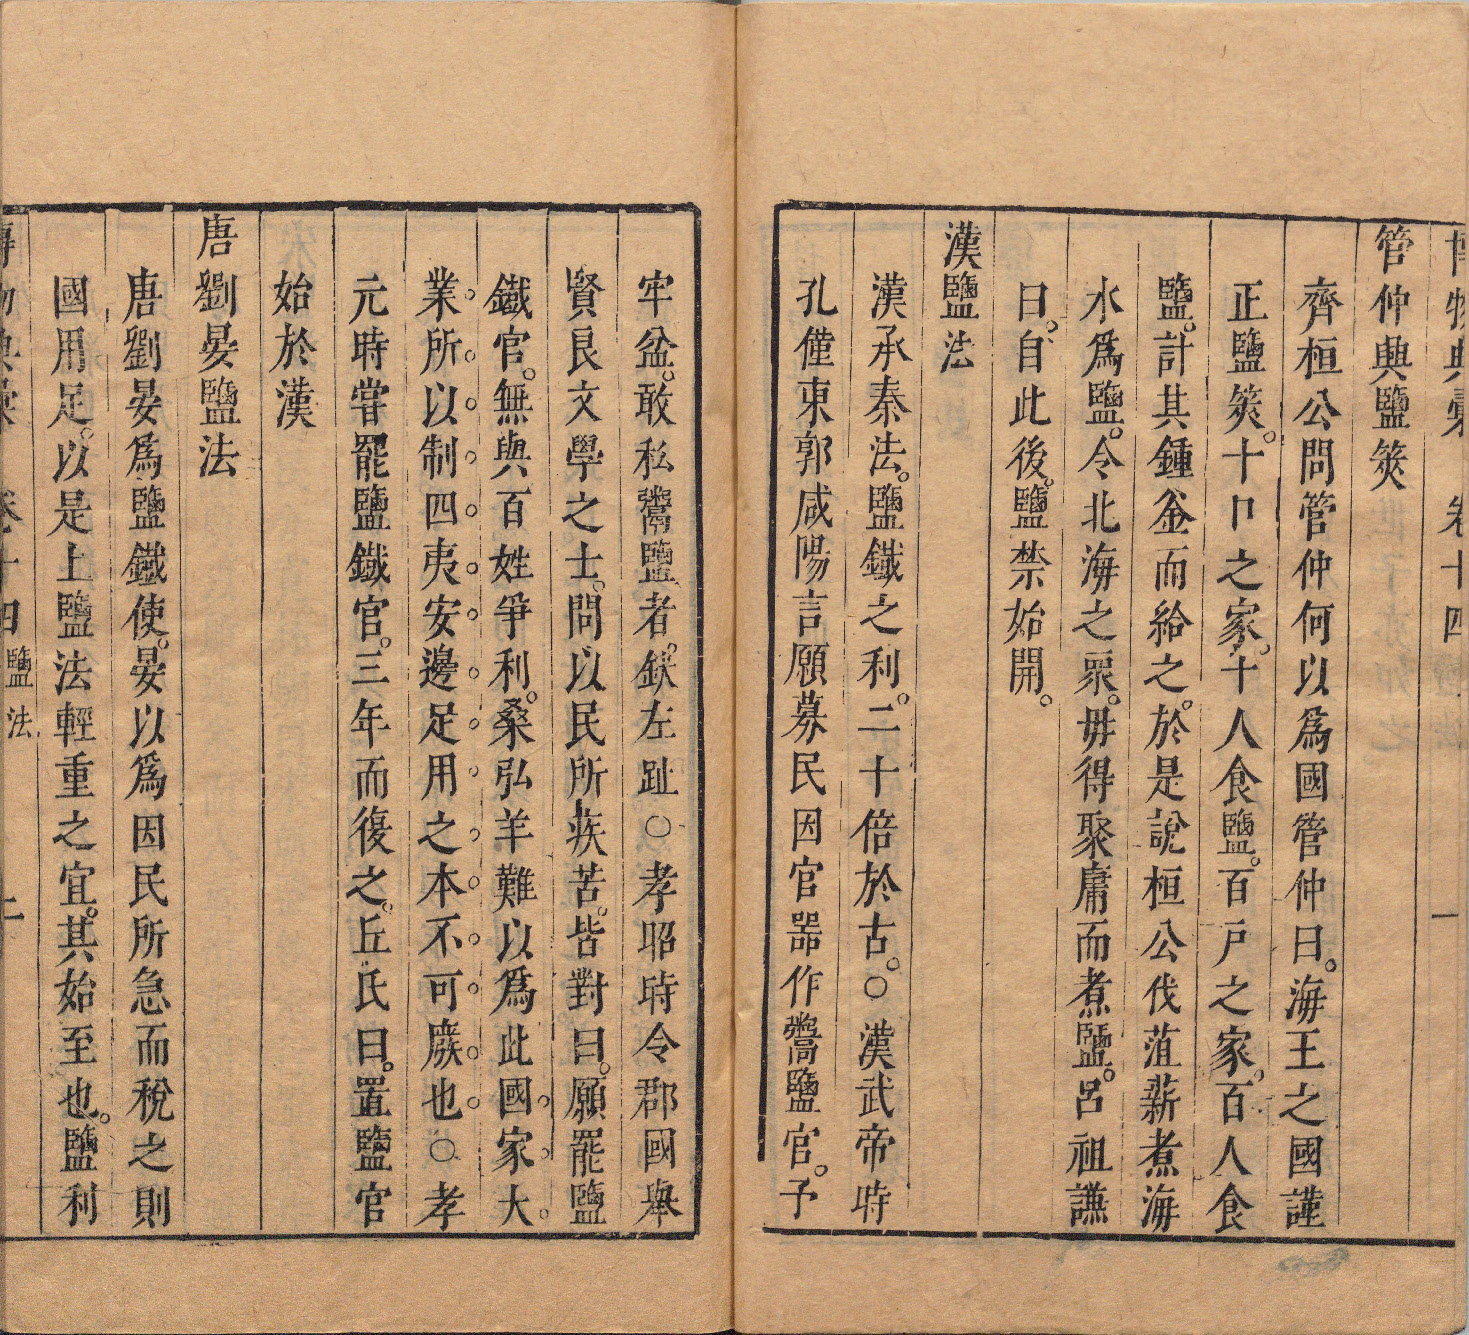 博物典彙 卷十四 一
管仲興鹽筴
齊桓公問管仲何以爲國管仲曰。海王之國謹
正鹽筴。十口之家。十人食鹽。百戶之家。百人食
鹽。計其鍾釜而給之。於是說桓公伐菹薪煮海
水爲鹽。令北海之衆。毋得聚庸而煮鹽。呂祖謙
曰。自此後。鹽禁始開。
漢鹽法
漢承秦法。鹽鐵之利。二十倍於古。○漢武帝時
孔僅東郭咸陽言願募民因官器作鬻鹽官。予
牢盆。敢私鬻鹽者。釱左趾○孝昭時令郡國舉
賢良文學之士。問以民所疾苦。皆對曰。願罷鹽
鐵官。無與百姓爭利。桑弘羊難以爲此國家大
業所以制四夷安邊足用之本不可廢也○孝
元時嘗罷鹽鐵官。三年而復之。丘氏曰。置鹽官
始於漢
唐劉晏鹽法
唐劉晏爲鹽鐵使。晏以爲因民所急而稅之則
國用足。以是上鹽法輕重之宜。其始至也。鹽利
博物典彙 卷十四 鹽法